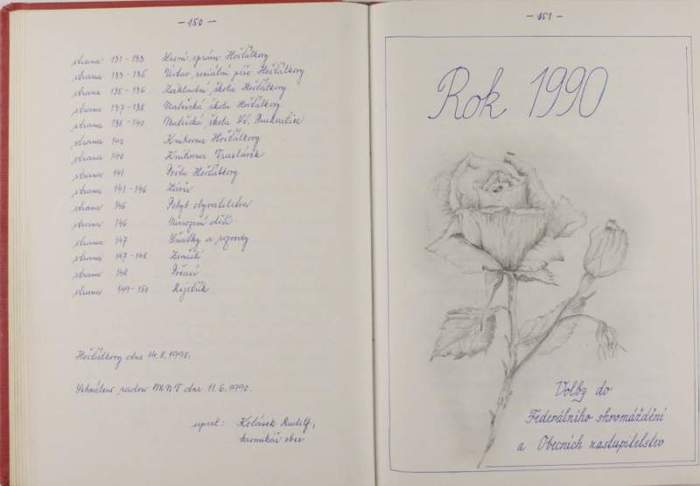 - 150 -
strana 131 - 133
strana 133 - 135 Ústav sociální péče Hošťálkovy
strana 135 - 136 Základní škola Hošťálkovy
strana 137 - 138 Mateřská škola Hošťálkovy
strana 138 - 140 Mateřská škola
strana 140 Knihovna Hošťálkovy
strana 140 Knihovna
strana 141 Pošta Hošťálkovy
strana 141 - 146 Závěr
strana 146 Pohyb obyvatelstva
strana 146 Narození dětí
strana 147 Sňatky a rozvody
strana 147 - 148 Zemřelí
strana 148 Počasí
strana 149 - 150 Rejstřík
Hošťálkovy dne
Schváleno radou MNV dne 11.6.1990.
zapsal: Rudolf,
kronikář obce
- 151 -
Rok 1990
Volby do
Federálního shromáždění
a Obecních zastupitelstev